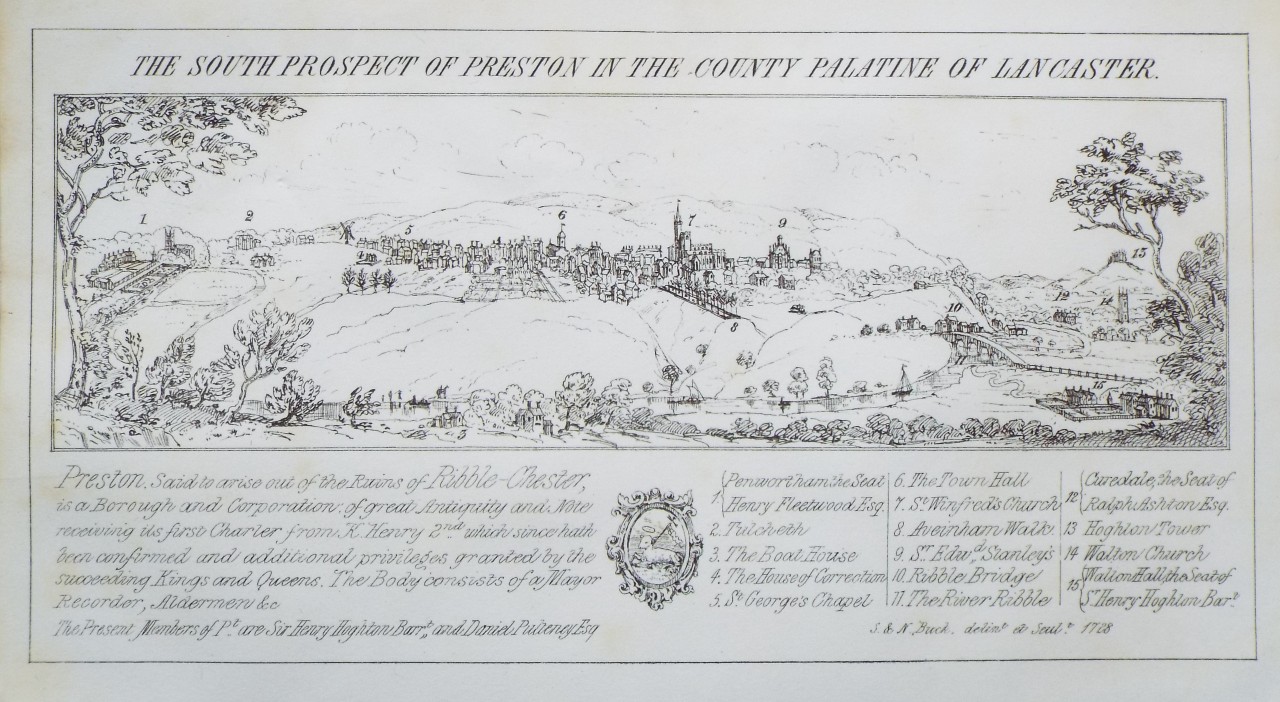 THE SOUTH PROSPECT OF PRESTON IN THE COUNTY PALATINE OF LANCASTER.
1
2
5
6
7
9
8
10
12
14
13
15
3
Preston. Said to arise out of the Ruins of Ribble-Chester,
is a Borough and Corporation: of great Antiquity and Note
receiving its first Charter from, K. Henry 2nd which since hath
been confirmed and additional privileges granted by the
succeeding Kings and Queens. The Body consists of a Mayor
Recorder, Aldermen &c
The Present Members of Pt. are Sir Henry Hoghton Barrt. and Daniel Pulteney Esq
1 { Penwortham, the Seat
Henry Fleetwood Esq.
2. Tulcheth
3. The Boat House
4. The House of Correction
5. St. George's Chapel
6. The Town Hall
7. St. Winfred's Church
8. Aveinham Walk.
9. Sr. Edwd. Stanley's
10. Ribble Bridge
11. The River Ribble
12 { Curedale, the Seat of
Ralph Ashton Esq.
13 Hoghton Tower
14 Walton Church
15 { Walton Hall, the Seat of
Sr. Henry Hoghton Bart.
S. & N. Buck. delint. et Scult. 1728